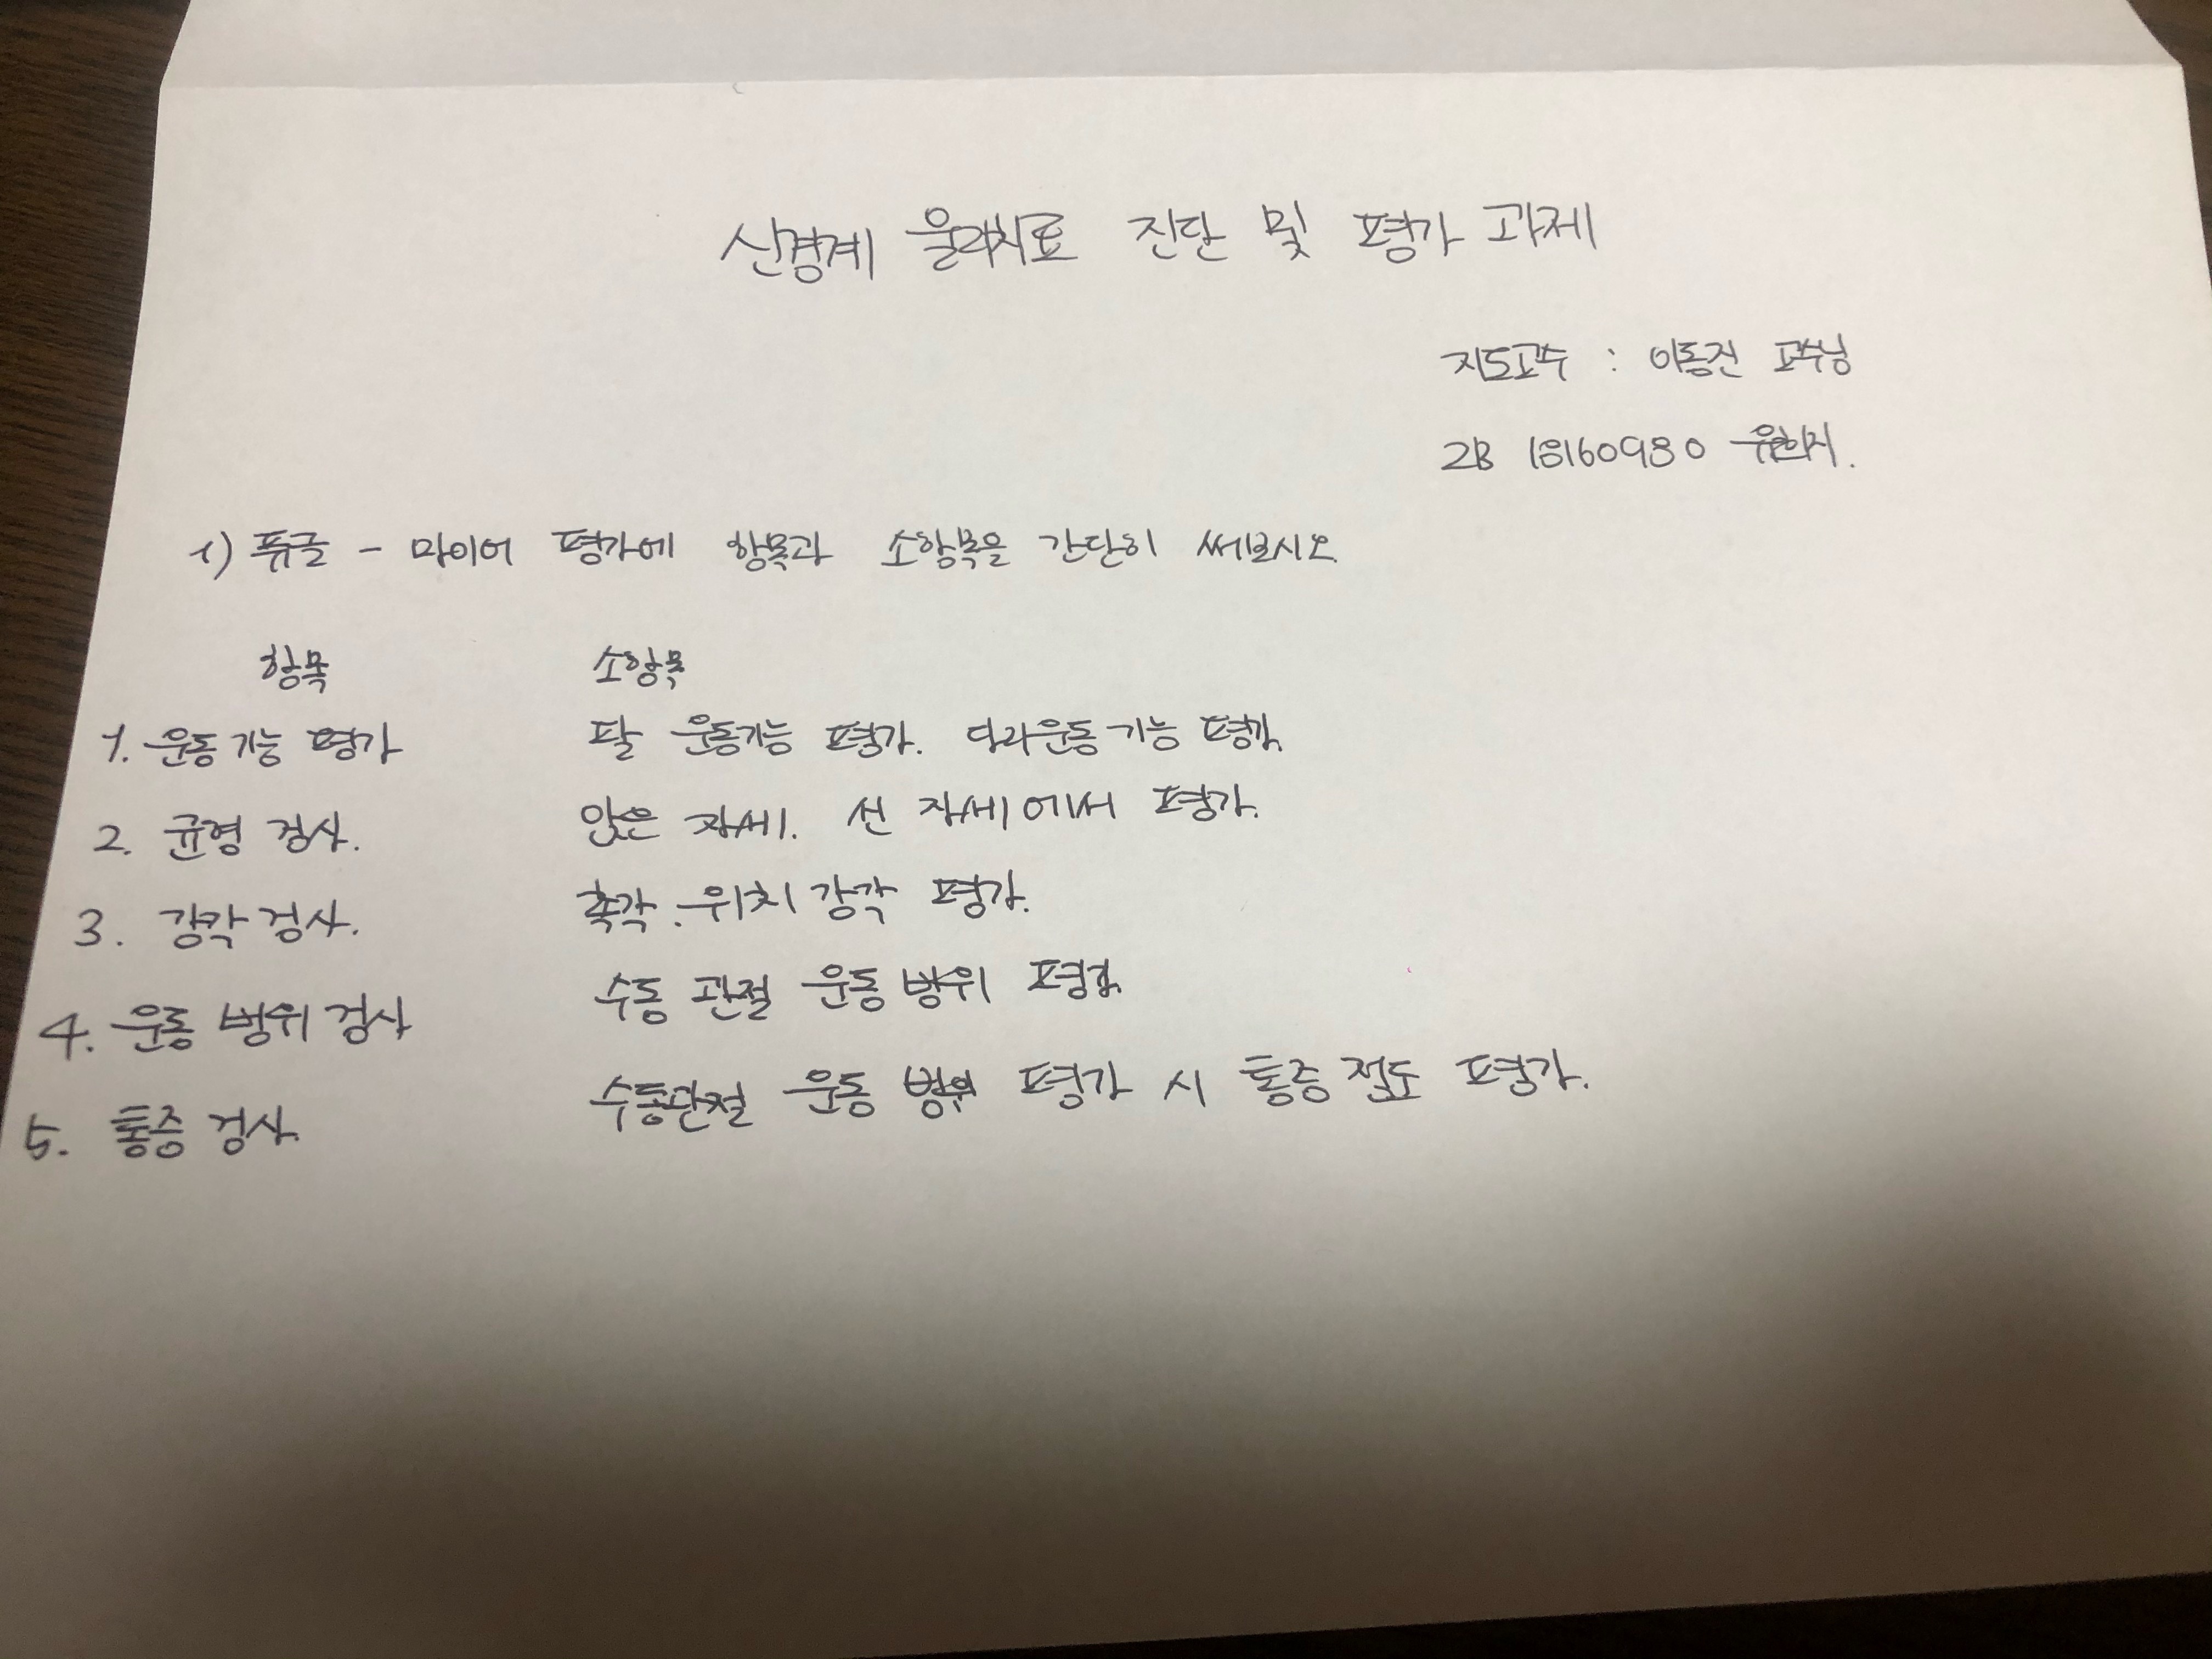 신경계 물리치료 진단 및 평가 과제
지도교수 : 이동진 교수님
2B 18160980 유현지.
1) 퓨글 - 마이어 평가에 항목과 소항목을 간단히 써보시오
항목 소항목
1. 운동기능 평가 팔 운동기능 평가. 다리운동기능 평가.
2. 균형 검사. 앉은 자세. 선 자세에서 평가.
3. 감각 검사. 촉각. 위치 감각 평가.
4. 운동 범위 검사 수동 관절 운동 범위 평가.
5. 통증 검사. 수동관절 운동 범위 평가 시 통증 정도 평가.